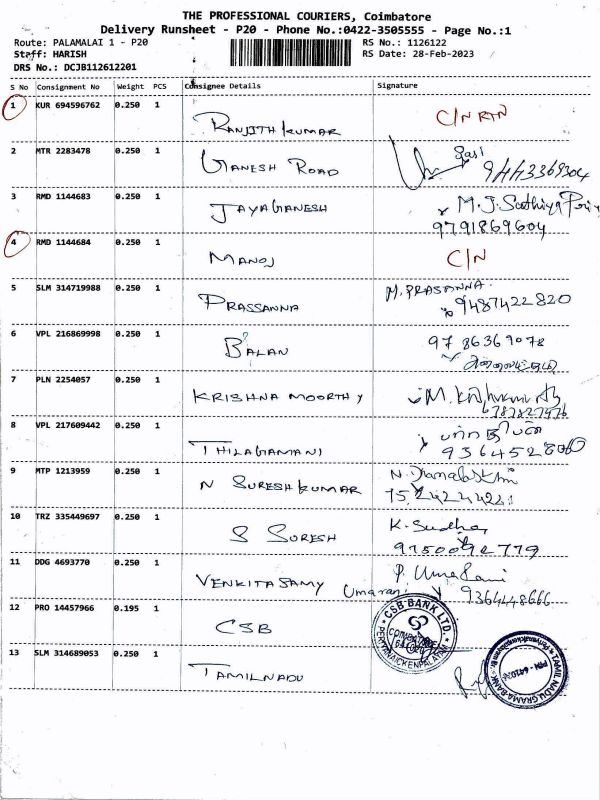 THE PROFESSIONAL COURIERS, Coimbatore
Delivery Runsheet - P20 - Phone No.:0422-3505555 - Page No.:1
Route: PALAMALAI 1 - P20 RS No.: 1126122
Staff: HARISH RS Date: 28-Feb-2023
DRS No.: DCJB112612201
S No Consignment No Weight PCS Consignee Details Signature
1 KUR 694596762 0.250 1 RANJITH KUMAR C/N RTN
2 MTR 2283478 0.250 1 GANESH ROAD Sasi 9443369304
3 RMD 1144683 0.250 1 JAYAGANESH M.J. Sathiya Priy
9791869604
4 RMD 1144684 0.250 1 MANOJ C/N
5 SLM 314719988 0.250 1 PRASSANNA M.PRASANNA.
9487422820
6 VPL 216869998 0.250 1 BALAN 9786369078
7 PLN 2254057 0.250 1 KRISHNA MOORTHY M.
8 VPL 217609442 0.250 1 THILAGAMANI
9 MTP 1213959 0.250 1 N SURESH KUMAR N.
10 TRZ 335449697 0.250 1 S SURESH K. Sudha
9750092779
11 DDG 4693770 0.250 1 VENKITASAMY Umarani P. Uma Rani
9364448666
12 PRO 14457966 0.195 1 CSB CSB BANK LTD. PERIYANAICKENPALAYAM
13 SLM 314689053 0.250 1 TAMILNADU TAMIL NADU GRAMA BANK